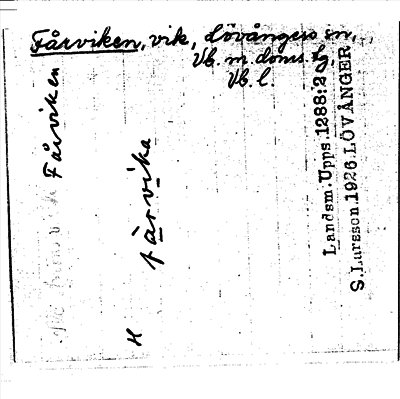 Fårviken, vik, Lövångers sn,
Vb. m. doms. tg,
Vb. l.
Fårviken
fårvika
H
Landsm. Upps. 1288:2
S. Larsson. 1926. LÖVÅNGER